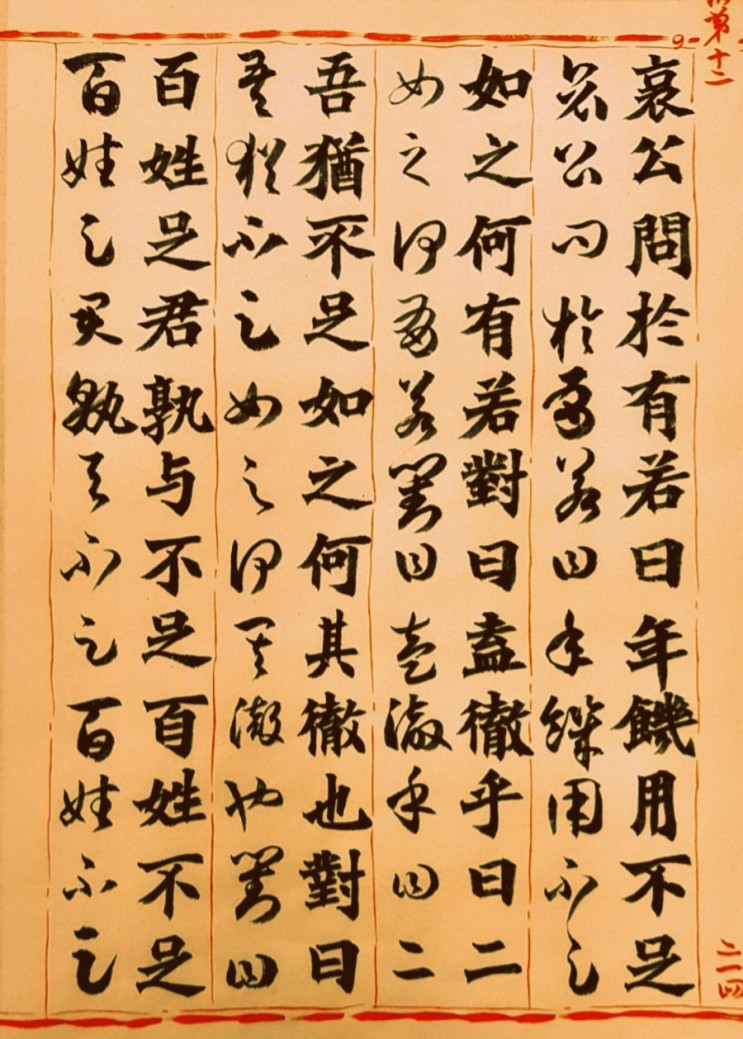 第十二
哀公問於有若曰年饑用不足
哀公问於有若曰年饑用不足
如之何有若對曰盍徹乎曰二
如之何有若對曰盍徹乎曰二
吾猶不足如之何其徹也對曰
吾猶不足如之何其徹也對曰
百姓足君孰与不足百姓不足
百姓足君孰与不足百姓不足